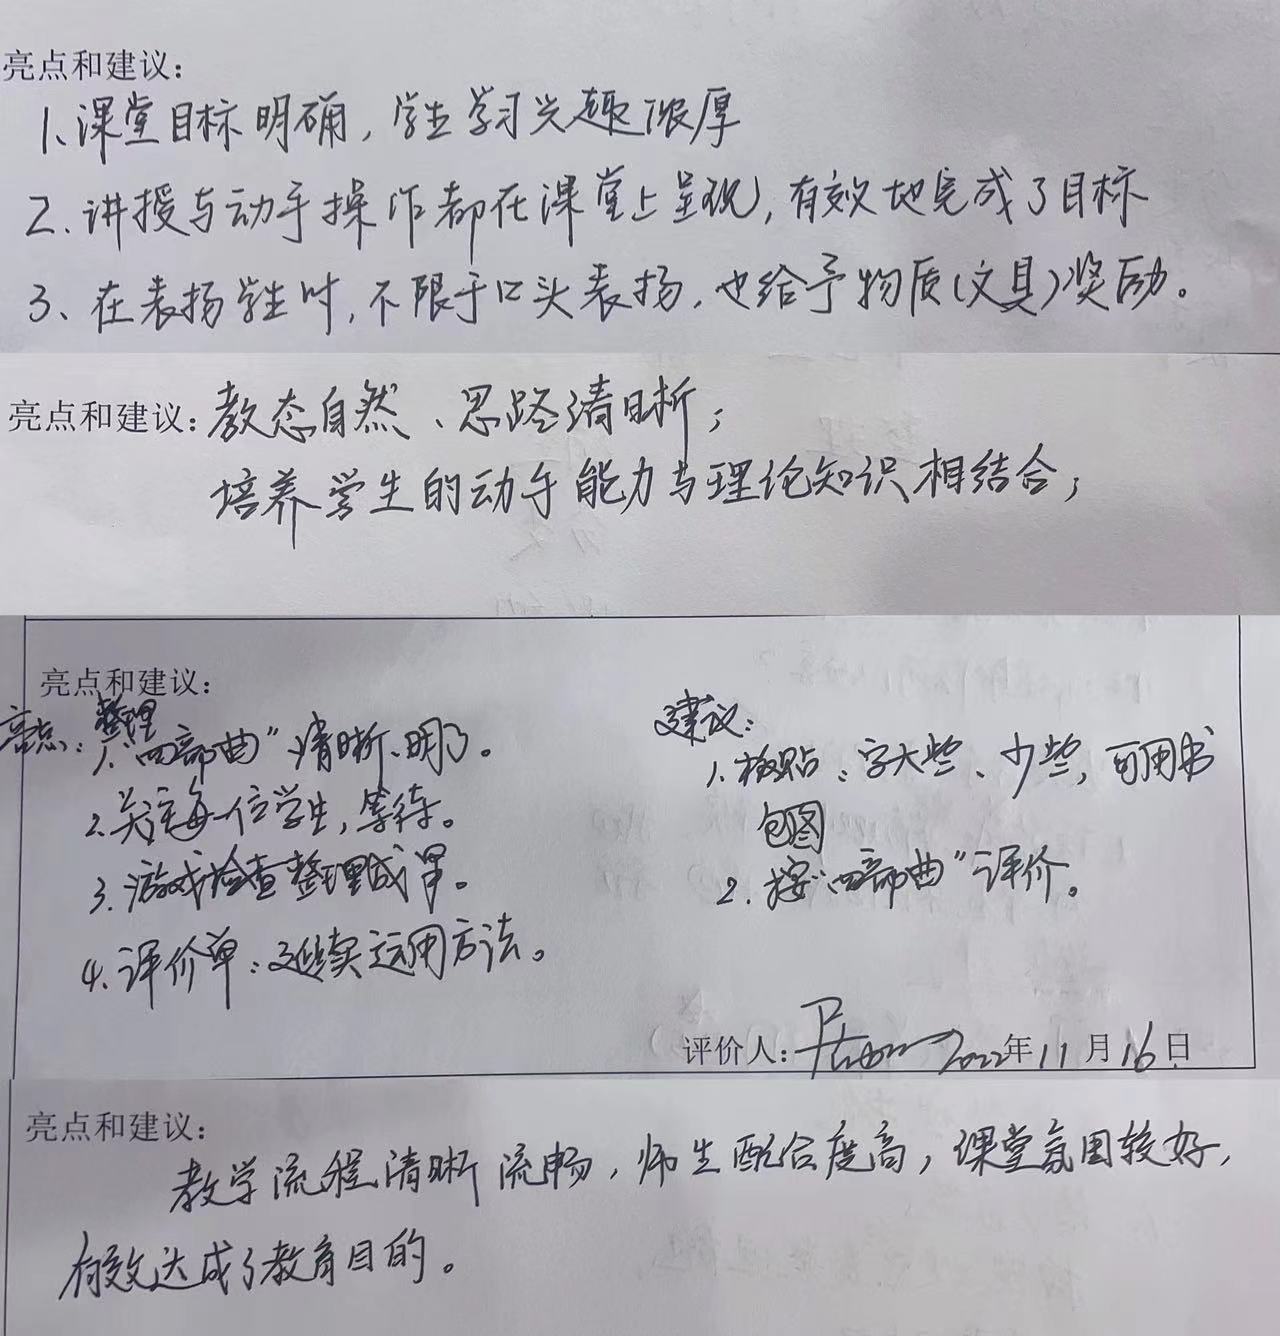 亮点和建议：
1、课堂目标明确，学生学习兴趣浓厚
2、讲授与动手操作都在课堂上呈现，有效地完成了目标
3、在表扬学生时，不限于口头表扬，也给予物质（文具）奖励。
亮点和建议：教态自然、思路清晰；
培养学生的动手能力与理论知识相结合；
亮点和建议：
亮点：整理
1、“四部曲”清晰、明了。
2、关注每一位学生，等待。
3、游戏检查整理成果。
4、评价单：延续运用方法。
建议：
1、板贴：字大些、少些，可用书
包图
2、按“四部曲”评价。
评价人： 2022年11月16日
亮点和建议：
教学流程清晰流畅，师生配合度高，课堂氛围较好，
有效达成了教育目的。